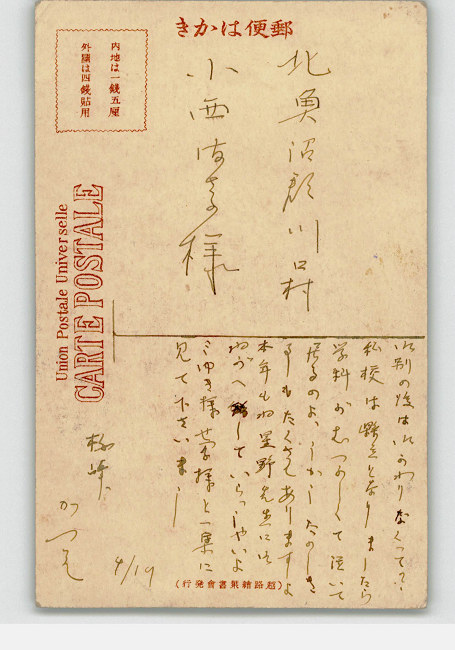 郵便はかき
内地は一錢五厘
外國は四錢貼用
Union Postale Universelle
CARTE POSTALE
北魚沼郡川口村
小西
様
御別の後は御かわりなくって?
私校は縣立となりましたら
学科がむつかしくて泣いて
居るのよ、しかしたのしき
事もたくさんありますよ
本年も 星野先生に
していらっしやいよ
ゆき様 様と一集に
見て下さいまし
かつえ
4/19
(越路繪葉書會発行)